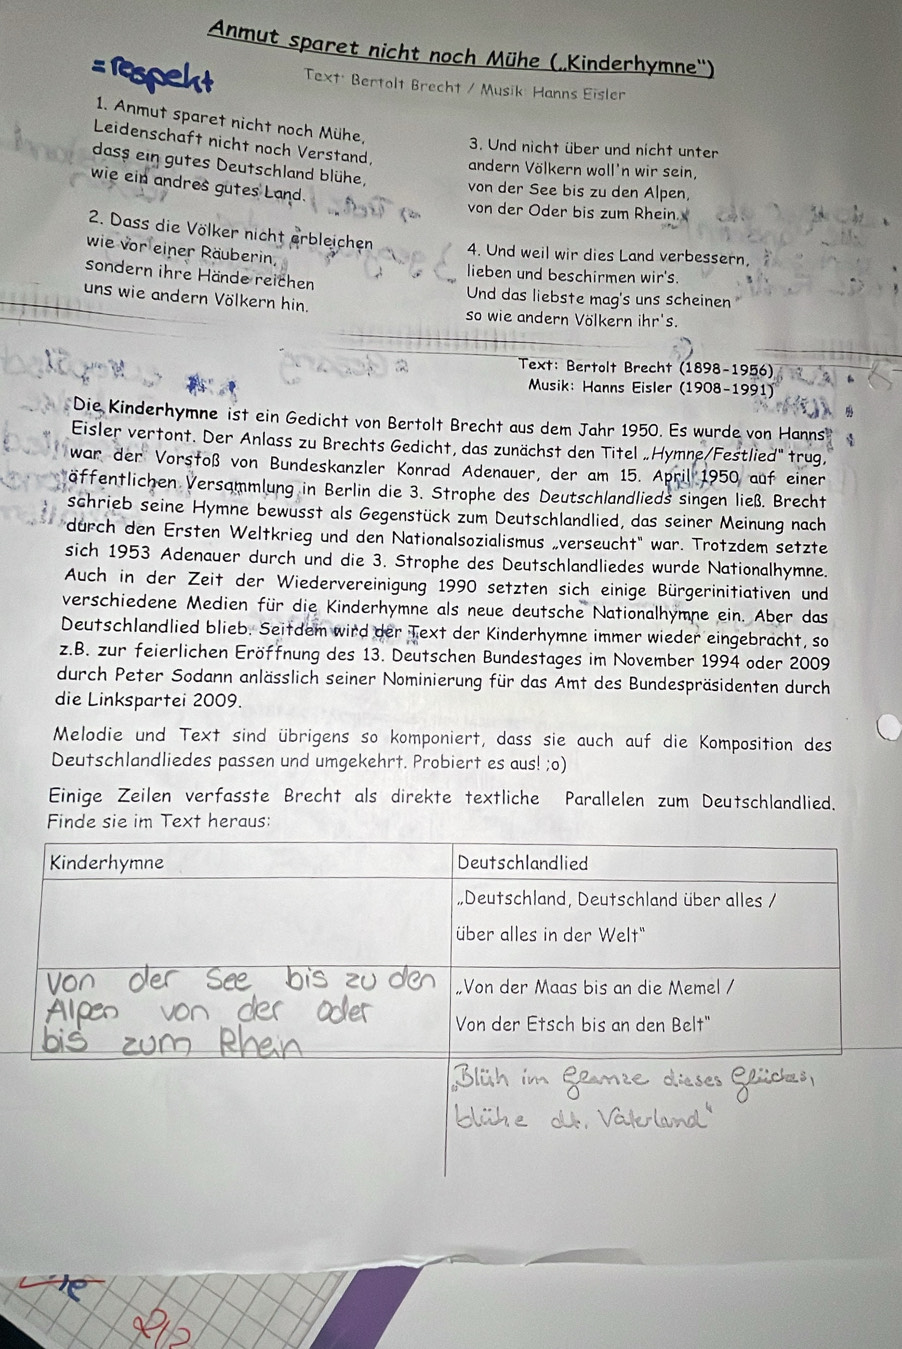 Anmut sparet nicht noch Mühe („Kinderhymne")
=respekt
Text: Bertolt Brecht / Musik: Hanns Eisler
1. Anmut sparet nicht noch Mühe,
Leidenschaft nicht noch Verstand,
dass ein gutes Deutschland blühe,
wie ein andres gutes Land.
2. Dass die Völker nicht erbleichen
wie vor einer Räuberin,
sondern ihre Hände reichen
uns wie andern Völkern hin.
3. Und nicht über und nicht unter
andern Völkern woll'n wir sein,
von der See bis zu den Alpen,
von der Oder bis zum Rhein.
4. Und weil wir dies Land verbessern,
lieben und beschirmen wir's.
Und das liebste mag's uns scheinen
so wie andern Völkern ihr's.
Text: Bertolt Brecht (1898-1956)
Musik: Hanns Eisler (1908-1991)
Die Kinderhymne ist ein Gedicht von Bertolt Brecht aus dem Jahr 1950. Es wurde von Hanns
Eisler vertont. Der Anlass zu Brechts Gedicht, das zunächst den Titel „Hymne/Festlied" trug,
war der Vorstoß von Bundeskanzler Konrad Adenauer, der am 15. April 1950 auf einer
öffentlichen Versammlung in Berlin die 3. Strophe des Deutschlandlieds singen ließ. Brecht
schrieb seine Hymne bewusst als Gegenstück zum Deutschlandlied, das seiner Meinung nach
durch den Ersten Weltkrieg und den Nationalsozialismus „verseucht" war. Trotzdem setzte
sich 1953 Adenauer durch und die 3. Strophe des Deutschlandliedes wurde Nationalhymne.
Auch in der Zeit der Wiedervereinigung 1990 setzten sich einige Bürgerinitiativen und
verschiedene Medien für die Kinderhymne als neue deutsche Nationalhymne ein. Aber das
Deutschlandlied blieb. Seitdem wird der Text der Kinderhymne immer wieder eingebracht, so
z.B. zur feierlichen Eröffnung des 13. Deutschen Bundestages im November 1994 oder 2009
durch Peter Sodann anlässlich seiner Nominierung für das Amt des Bundespräsidenten durch
die Linkspartei 2009.
Melodie und Text sind übrigens so komponiert, dass sie auch auf die Komposition des
Deutschlandliedes passen und umgekehrt. Probiert es aus! ;o)
Einige Zeilen verfasste Brecht als direkte textliche Parallelen zum Deutschlandlied.
Finde sie im Text heraus:
Kinderhymne
Deutschlandlied
„Deutschland, Deutschland über alles /
über alles in der Welt"
von der See bis zu den
Alpen von der Oder
bis zum Rhein
„Von der Maas bis an die Memel /
Von der Etsch bis an den Belt"
„Blüh im Glanze dieses Glückes,
blühe dt. Vaterland"